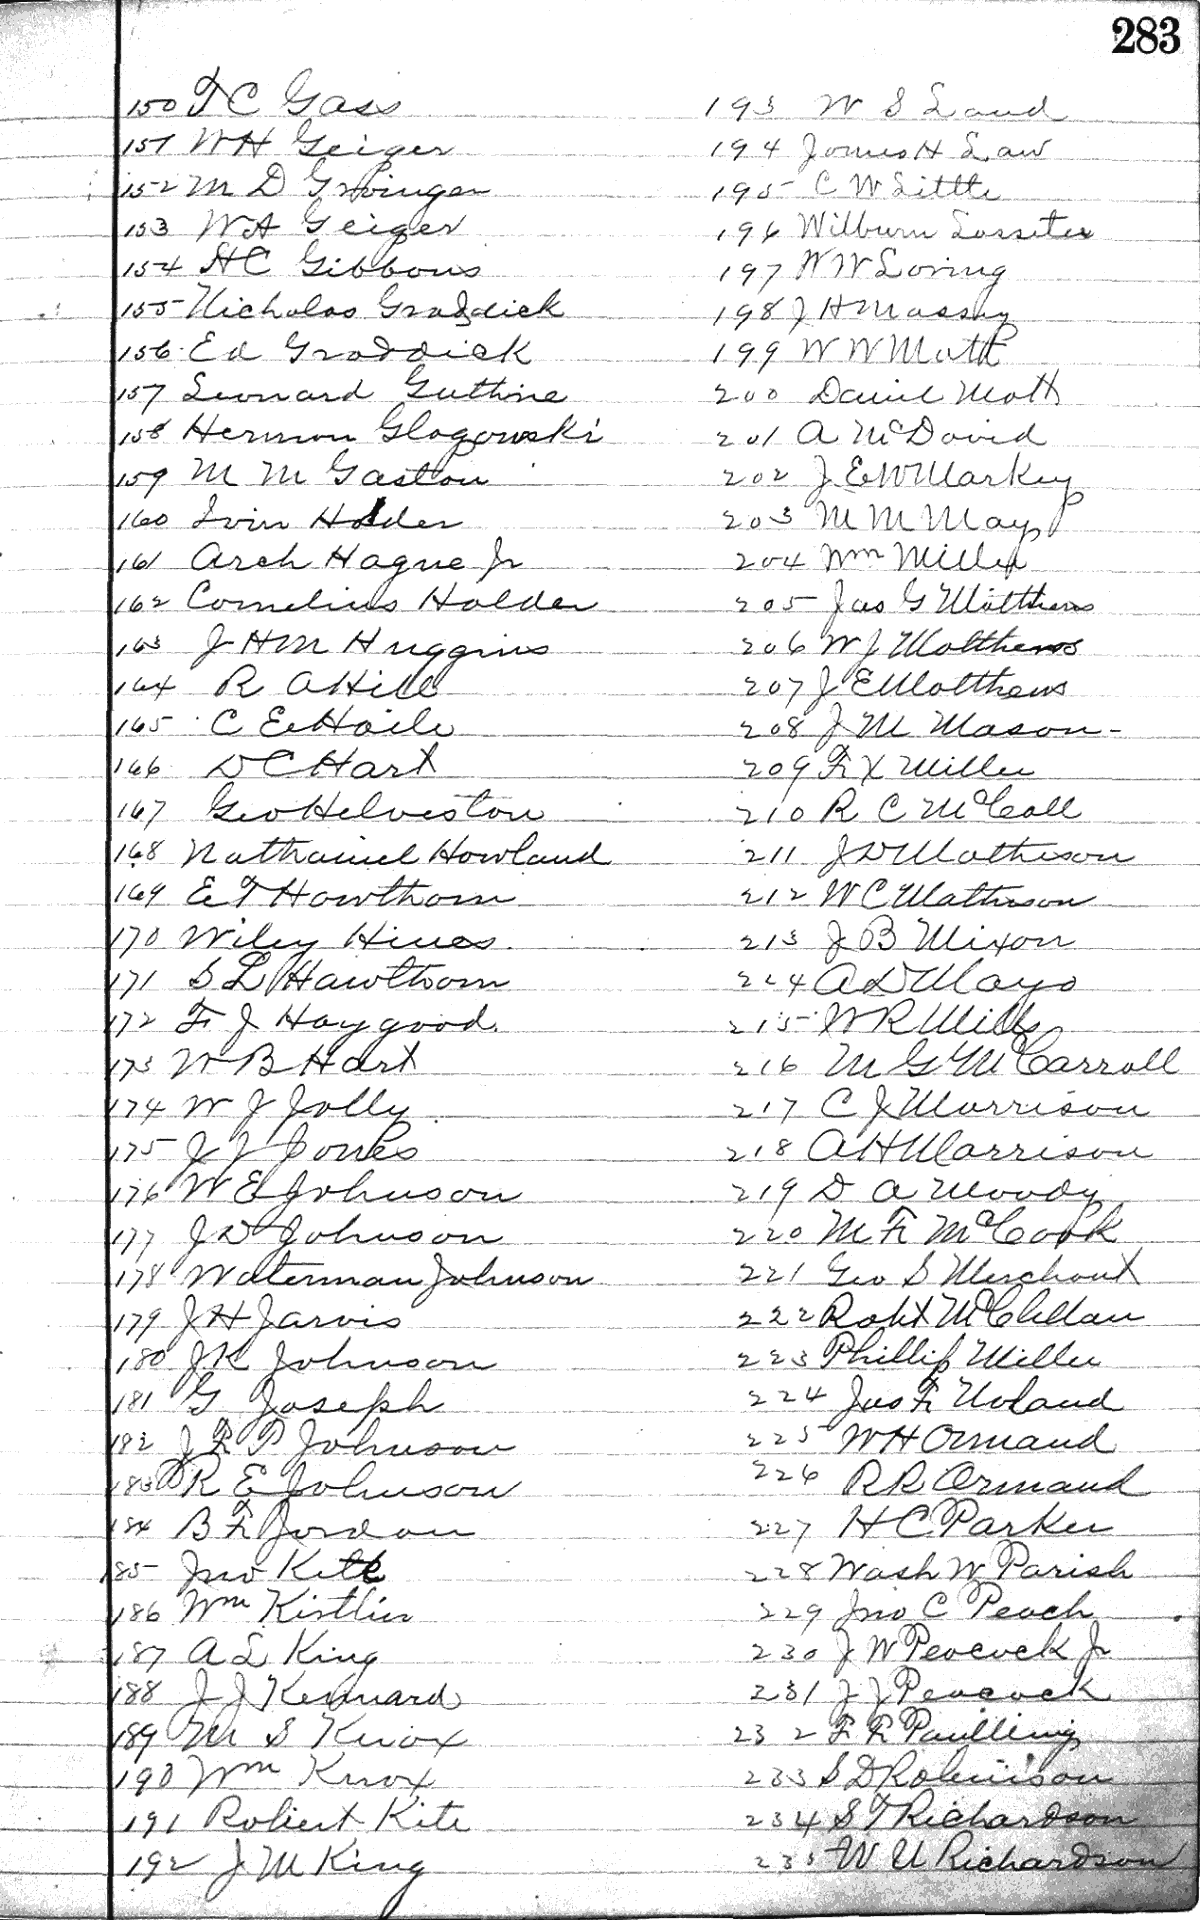 283
150 T C Gass
151 W H Geiger
152 M D Grainger
153 W A Geiger
154 H C Gibbons
155 Nicholas Graddick
156 Ed Graddick
157 Leonard Guthrie
158 Hermon Glogowski
159 M M Gaston
160 Ivin Holder
161 Arch Hague Jr
162 Cornelius Holder
163 J H M Huggins
164 R A Hill
165 C E Haile
166 D C Hart
167 Geo Helveston
168 Nathaniel Howland
169 E T Hawthorn
170 Wiley Hines
171 S L Hawthorn
172 F J Haygood
173 W B Hart
174 W J Jolly
175 J J Jones
176 W E Johnson
177 J D Johnson
178 Waterman Johnson
179 J H Jarvis
180 J K Johnson
181 G Joseph
182 J R P Johnson
183 R E Johnson
184 B F Jordan
185 Jno Kite
186 Wm Kistler
187 A L King
188 J J Kennard
189 M S Knox
190 Wm Knox
191 Robert Kite
192 J M King
193 W S Land
194 James H Law
195 C W Little
196 Wilburn Lassiter
197 W W Loring
198 J H Massey
199 W W Matt
200 David Mott
201 A McDavid
202 J E W Markey
203 M M Mays
204 Wm Miller
205 Jas G Matthews
206 W J Matthews
207 J E Matthews
208 J M Mason
209 F X Miller
210 R C McCall
211 J D Matheson
212 W C Matheson
213 J B Mixon
214 A D Mayo
215 W R Mills
216 M G McCarroll
217 C J Morrison
218 A H Morrison
219 D A Moody
220 M F McCook
221 Geo S Merchant
222 Robt McClellan
223 Phillip Miller
224 Jas F Noland
225 W H Ormand
226 R R Ormand
227 H C Parker
228 Wash W Parish
229 Jno C Peach
230 J W Peacock Jr
231 J J Peacock
232 F F Paulling
233 S D Robinson
234 S T Richardson
235 W U Richardson